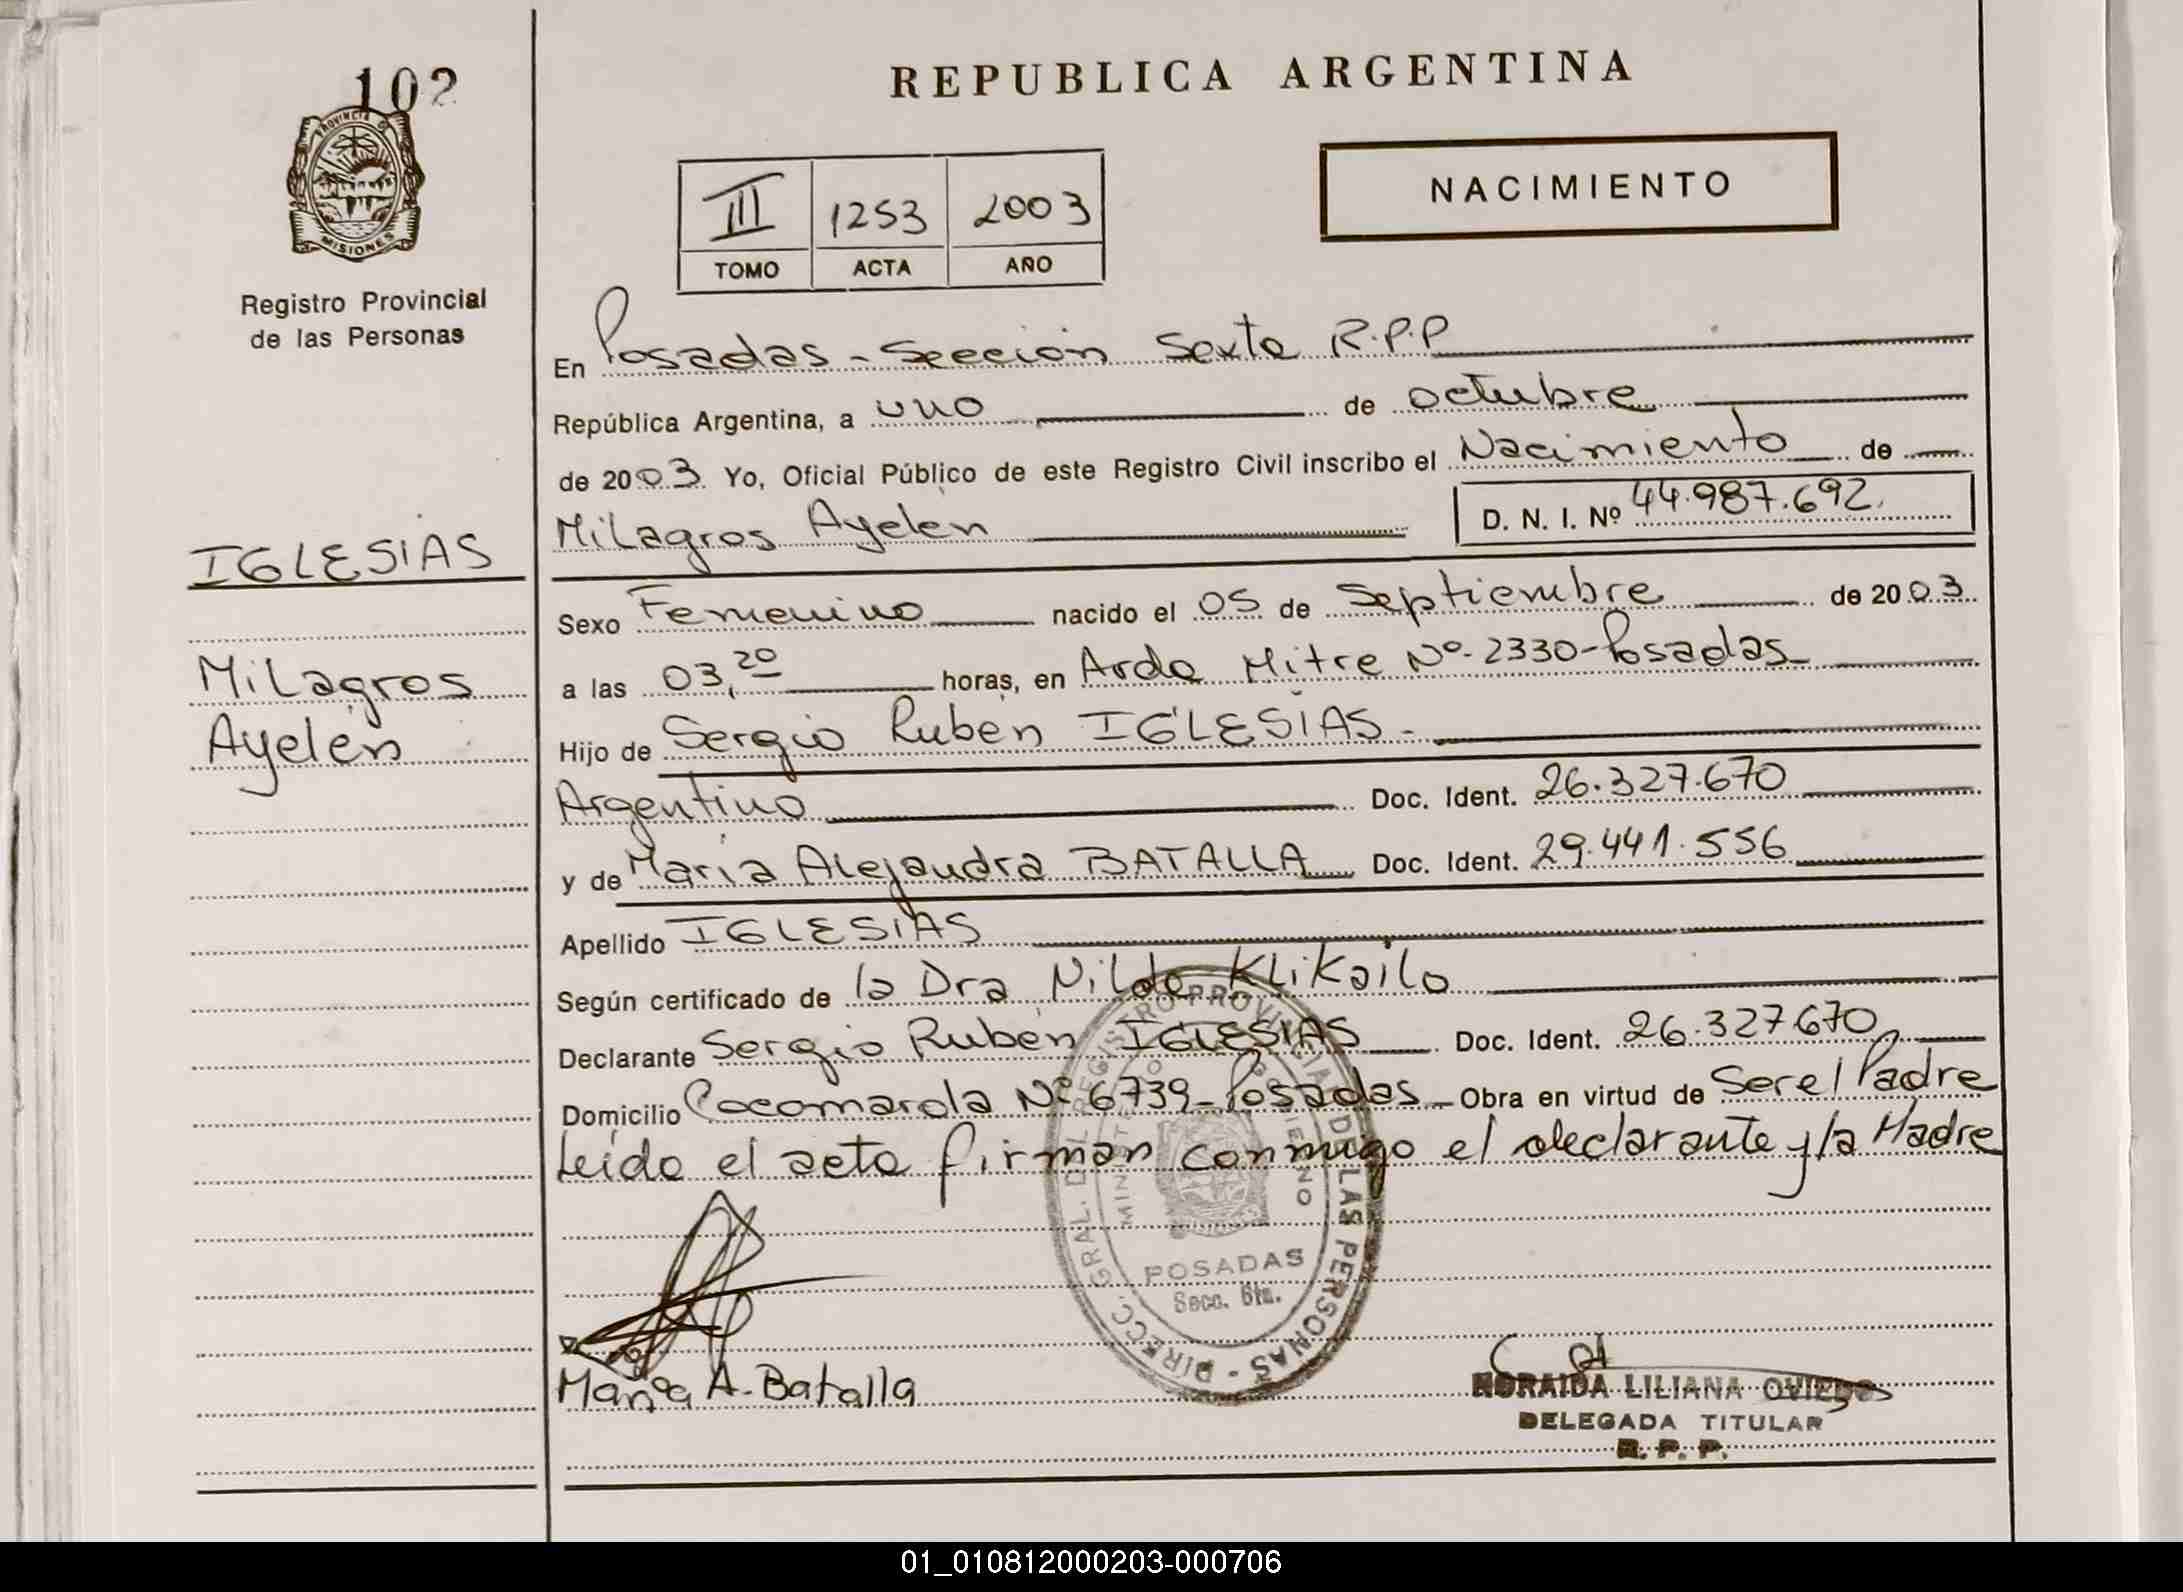 102
PROVINCIA DE
MISIONES
Registro Provincial
de las Personas
REPUBLICA ARGENTINA
NACIMIENTO
III 1253 2003
TOMO ACTA AÑO
En Posadas - Sección Sexta R.P.P
República Argentina, a uno de octubre
de 2003 Yo, Oficial Público de este Registro Civil inscribo el Nacimiento de
Milagros Ayelén
D. N. I. Nº 44.987.692.
IGLESIAS
Milagros
Ayelén
Sexo Femenino nacido el 05 de Septiembre de 2003
a las 03,20 horas, en Avda Mitre Nº 2330-Posadas
Hijo de Sergio Rubén IGLESIAS -
Argentino Doc. Ident. 26.327.670
y de María Alejandra BATALLA Doc. Ident. 29.441.556
Apellido IGLESIAS
Según certificado de la Dra Nilda Klikailo
Declarante Sergio Rubén IGLESIAS Doc. Ident. 26.327.670
Domicilio Cocomarola Nº 6739-Posadas Obra en virtud de Ser el Padre
Leída el acta firman conmigo el declarante y la Madre
DIRECC. GRAL. DEL REGISTRO PROVINCIAL DE LAS PERSONAS -
MINISTERIO DE GOBIERNO
POSADAS
Secc. 6ta.
María A. Batalla
NORAIDA LILIANA OVIEDO
DELEGADA TITULAR
R. P. P.
01_010812000203-000706